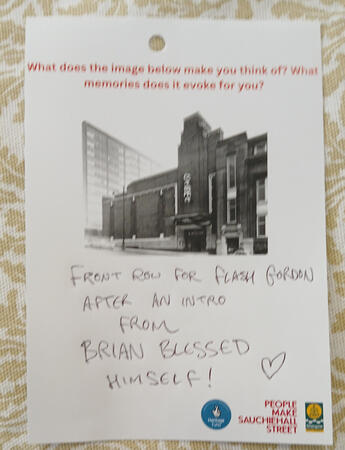 What does the image below make you think of? What
memories does it evoke for you?
FRONT ROW FOR FLASH GORDON
AFTER AN INTRO
FROM
BRIAN BLESSED
HIMSELF!
PEOPLE
MAKE
SAUCHIEHALL
STREET
Heritage
Fund